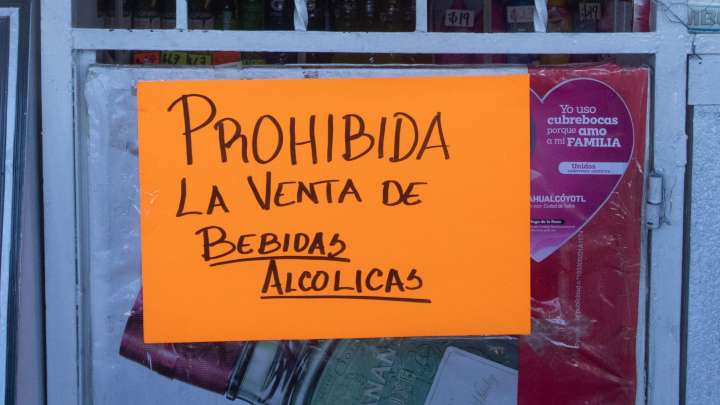 PROHIBIDA
LA VENTA DE
BEBIDAS
ALCOLICAS
Yo uso
cubrebocas
porque amo
a mi FAMILIA
Unidos
AHUALCÓYOTL